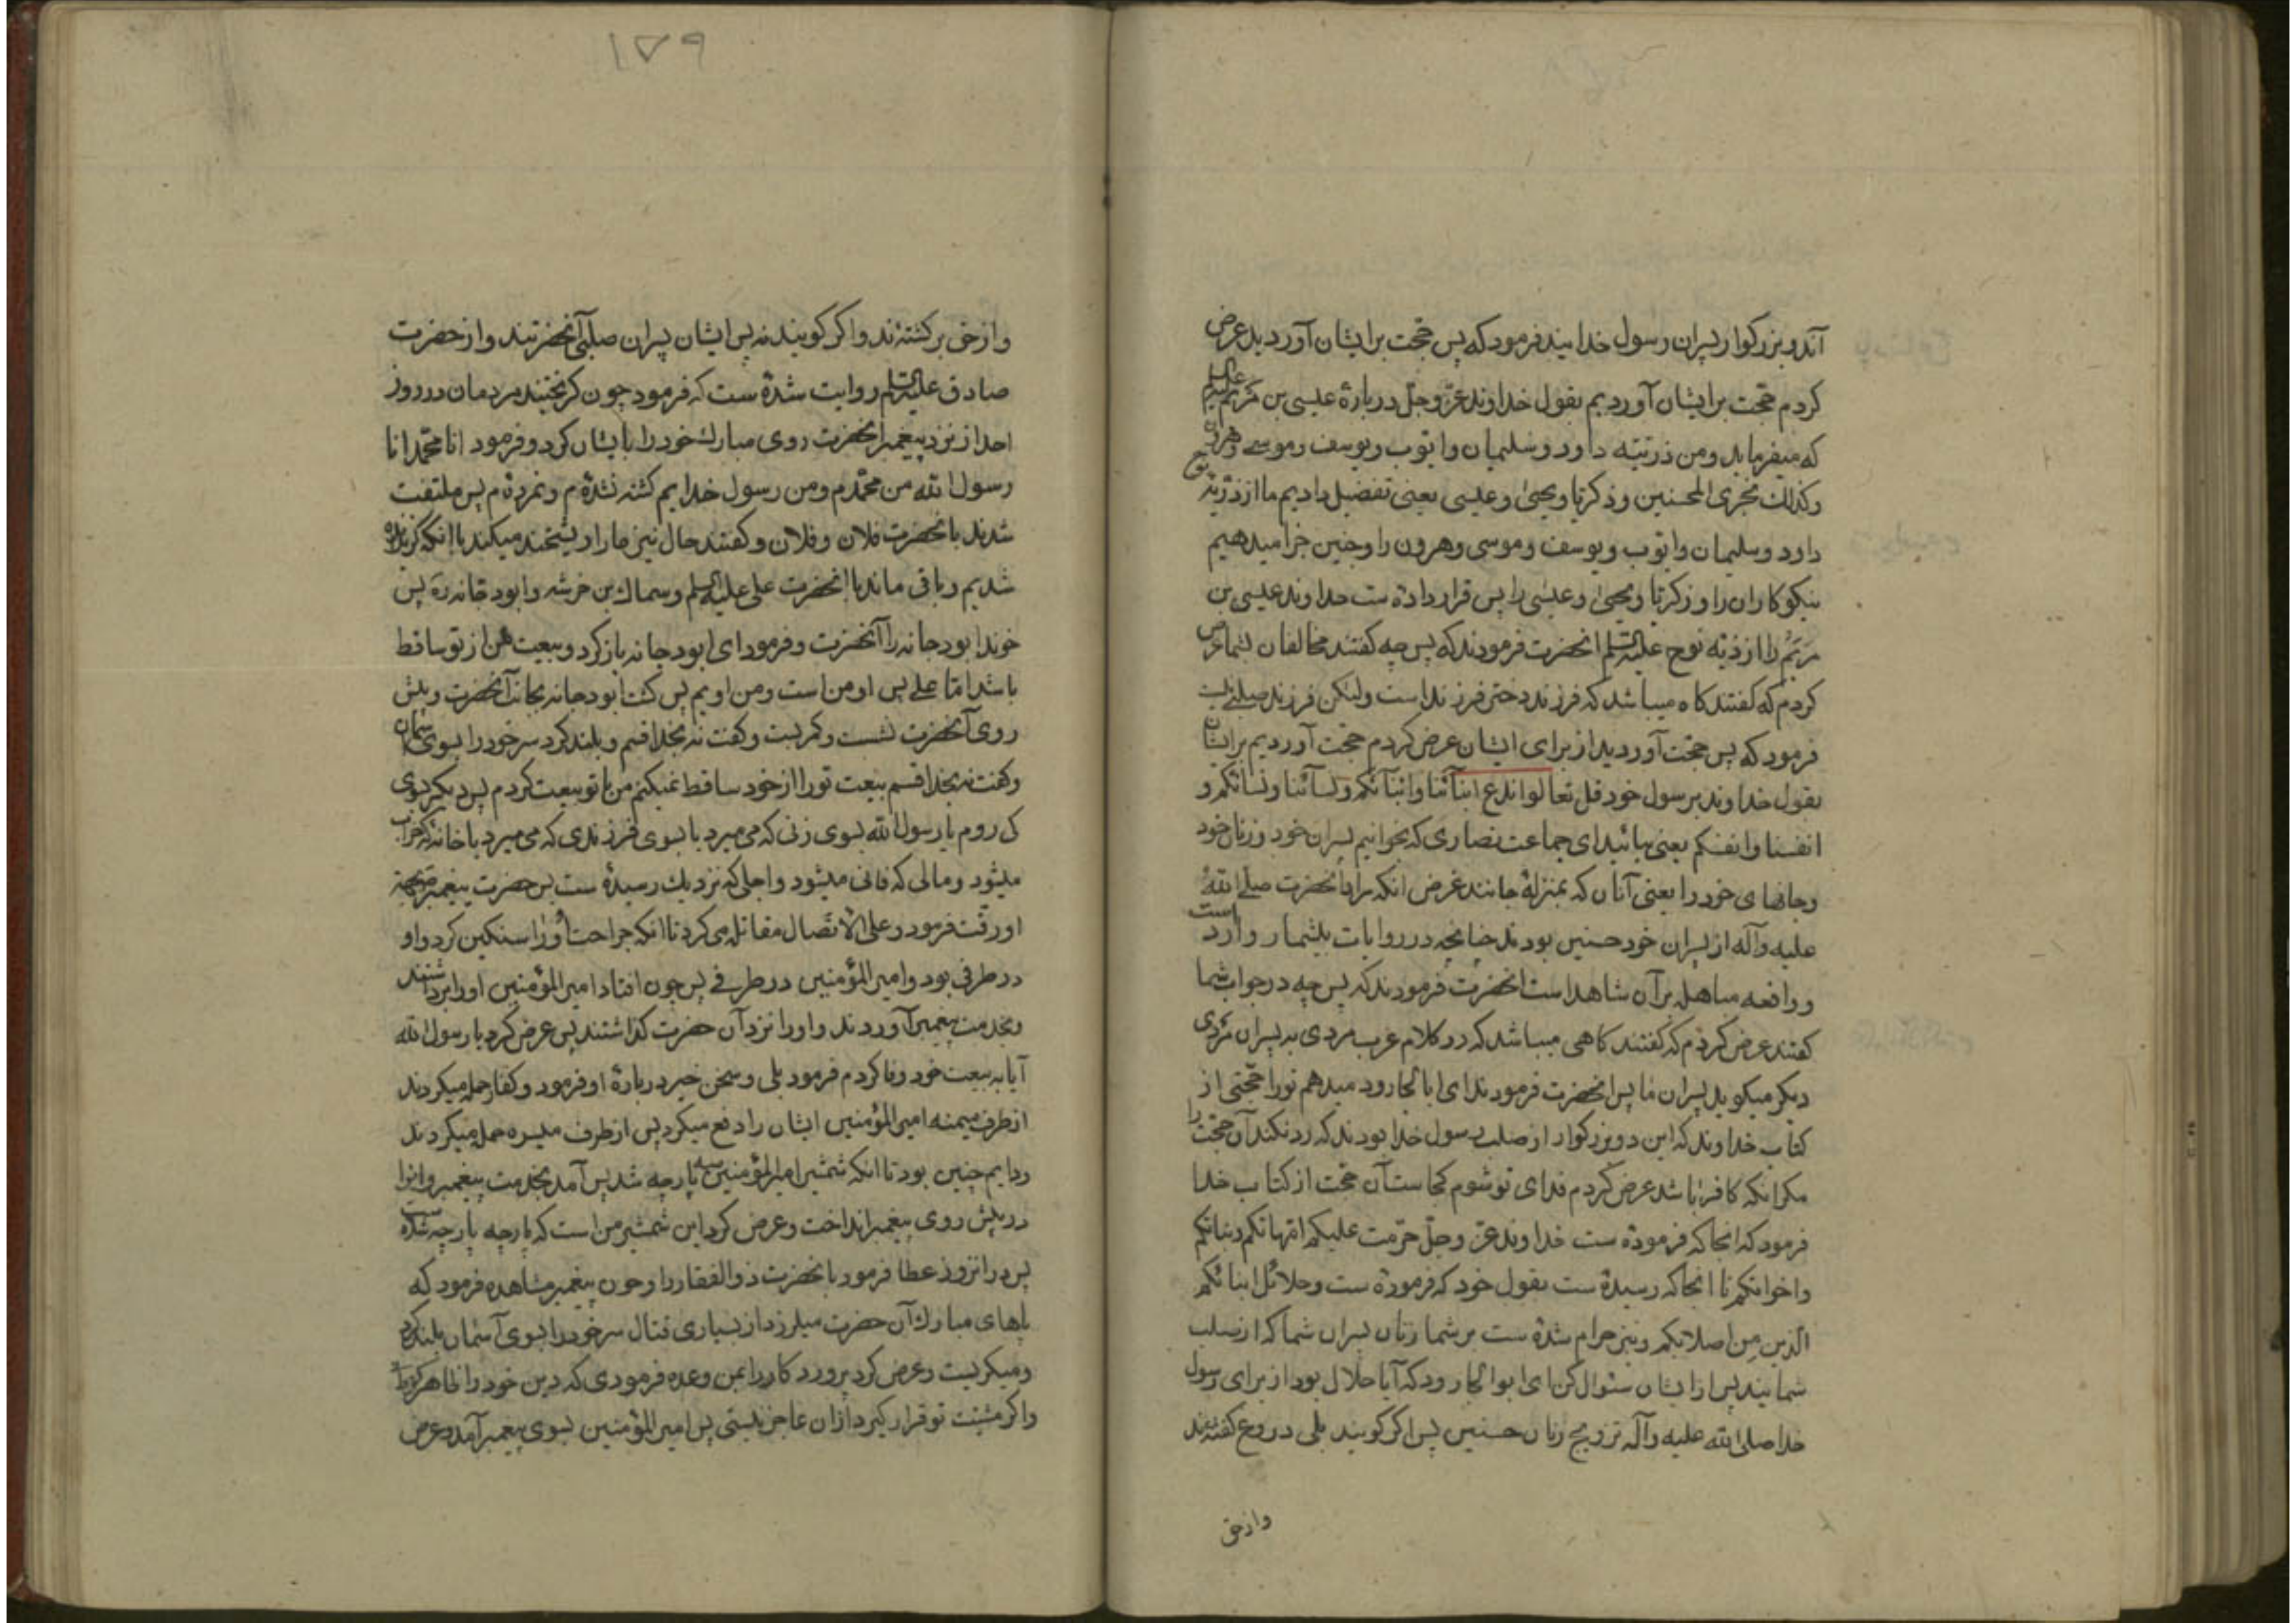 آندو بزرکوار پسران رسول خدایند فرمود که پس حجت بر ایشان آوردید عرض
کردم حجت بر ایشان آوردیم بقول خداوند عزّ و جلّ در بارهٔ عیسی بن مریم علیه السلم
که میفرماید ومن ذریّته داود وسلیمان وایّوب ویوسف وموسے وهرون
وکذلك نجزی المحسنین وزکریّا ویحیی وعیسی یعنی تفضیل دادیم ما از ذرّیّه نوح
داود وسلیمان وایّوب ویوسف وموسی وهرون را وچنین جزا میدهیم
نیکوکاران را وزکریّا ویحییٰ وعیسٰی را پس قرار داده ست خداوند عیسی بن
مریم را از ذریّه نوح علیه السلم انحضرت فرمودند که پس چه کفتند مخالفان بشما عرض
کردم که کفتند کاه میباشد که فرزند دختر فرزند است ولیکن فرزند صلبی نیست
فرمود که پس حجت آوردید از برای ایشان عرض کردم حجت آوردیم بر ایشان
بقول خداوند بر رسول خود قل تعالوا ندع ابنآئنا وابنآئکم ونسآئنا ونسائکم و
انفسنا وانفسکم یعنی بیائید ای جماعت نصاری که بخوانیم پسران خود وزنان خود
وجانهای خود را یعنی آنان که بمنزلهٔ جانند غرض انکه مراد آنحضرت صلی الله
علیه وآله از پسران خود حسنین بودند چنانچه در روایات بیشمار وارد است
وواقعه مباهله بر آن شاهد است انحضرت فرمودند که پس چه در جواب شما
کفتند عرض کردم که کفتند کاهی میباشد که در کلام عرب مردی به پسران مردی
دیکر میکوید پسران ما پس انحضرت فرمودند ای ابا الجارود میدهم تورا حجتی از
کتاب خداوند که این دو بزرکوار از صلب رسول خدا بودند که رد نکند آن حجت را
مکر انکه کافر باشد عرض کردم فدای تو شوم کجاست آن حجت از کتاب خدا
فرمود که انجا که فرموده ست خداوند عزّ وجلّ حرّمت علیکم امّهاتکم وبناتکم
واخواتکم تا انجا که رسیده ست بقول خود که فرموده ست وحلائل ابنائکم
الّذین مِن اصلابکم ونیز حرام شده ست بر شما زنان پسران شما که از صلب
شمایند پس از ایشان سئوال کن ای ابو الجارود که آیا حلال بود از برای رسول
خدا صلی الله علیه وآله تزویج زنان حسنین پس اکر کویند بلی دروغ کفته‌ند
واز حق
۱۷۹
واز حق برکشته‌ند واکر کویند نه پس ایشان پسران صلبی آنحضرتند واز حضرت
صادق علیه السلم روایت شده ست که فرمود چون کریختند مردمان در روز
احد از نزد پیغمبر انحضرت روی مبارك خود را بایشان کرد وفرمود انا محمّد انا
رسول الله من محمّدم ومن رسول خدایم کشته نشده‌م ونمرده‌م پس ملتفت
شدند بانحضرت فلان وفلان وکفتند حال نیز مارا ریشخند میکند با انکه کریزنده
شدیم وباقی ماند با انحضرت علی علیه السلم وسماك بن خرشه وابودجانه ره پس
خواند ابودجانه را آنحضرت وفرمود ای ابودجانه باز کرد وبیعت من از تو ساقط
باشد امّا علے پس او من است ومن اویم پس کشت ابودجانه بجانب آنحضرت وپیش
روی آنحضرت نشست وکریست وکفت نه بخدا قسم وبلند کرد سر خود را بسوی آسمان
وکفت نه بخدا قسم بیعت تورا از خود ساقط نمیکنم من با تو بیعت کردم پس دیکر بسوی
که روم یا رسول الله بسوی زنی که می میرد یا بسوی فرزندی که می میرد یا خانهٔ که خراب
میشود ومالی که فانی میشود واجلی که نزدیك رسیده ست پس حضرت پیغمبر بجهة
او رقّت فرمود وعلی الاتّصال مقاتله می کرد تا انکه جراحت اورا سنکین کرد واو
در طرفی بود وامیر المؤمنین در طرفے پس چون افتاد امیر المؤمنین اورا برداشتند
وبخدمت پیغمبر آوردند واورا نزد آن حضرت کذاشتند پس عرض کرد یا رسول الله
آیا به بیعت خود وفا کردم فرمود بلی وسخن خیر در بارهٔ او فرمود وکفار حمله میکردند
از طرف میمنه امیر المؤمنین ایشان را دفع میکرد پس از طرف میسره حمله میکردند
ودایم چنین بود تا انکه شمشیر امیر المؤمنین سه پارچه شد پس آمد بخدمت پیغمبر وانرا
در پیش روی پیغمبر انداخت وعرض کرد این شمشیر من است که پارچه پارچه شده ست
پس در انروز عطا فرمود بانحضرت ذو الفقار را وچون پیغمبر مشاهده فرمود که
پاهای مبارك آن حضرت میلرزد از بسیاری قتال سر خود را بسوی آسمان بلند کرد
ومیکریست وعرض کرد پروردکارا بمن وعده فرمودی که دین خود را ظاهر کردانی
واکر مشیّت تو قرار کیرد از ان عاجز نیستی پس امیر المؤمنین بسوی پیغمبر آمد وعرض